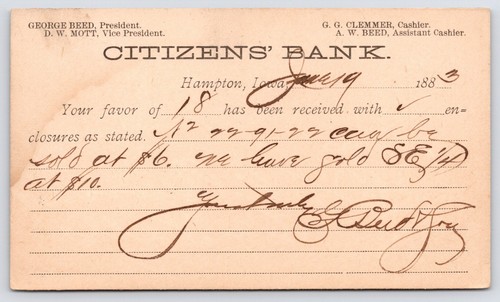 GEORGE BEED, President.
D. W. MOTT, Vice President.
G. G. CLEMMER, Cashier.
A. W. BEED, Assistant Cashier.
CITIZENS' BANK.
Hampton, Iowa, June 19 1883
Your favor of 18 has been received with ✓ en-
closures as stated. N² 22-91-22 can be
sold at $6. We have sold SE 1/4
at $10.
Yours truly